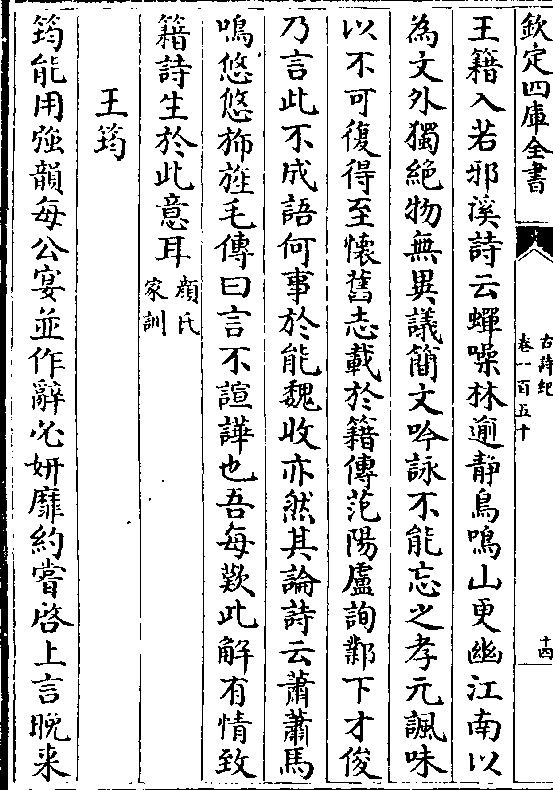 欽定四庫全書
古詩紀
卷一百五十
十四
王籍入若邪溪詩云蟬噪林逾静鳥鳴山更幽江南以
為文外獨絶物無異議簡文吟詠不能忘之孝元諷味
以不可復得至懐舊志載於籍傳范陽盧詢鄴下才俊
乃言此不成語何事於能魏收亦然其論詩云蕭蕭馬
鳴悠悠斾旌毛傳曰言不諠譁也吾每歎此解有情致
籍詩生於此意耳顔氏
家訓
王筠
筠能用強韻每公宴並作辭必妍靡約嘗啓上言晚来